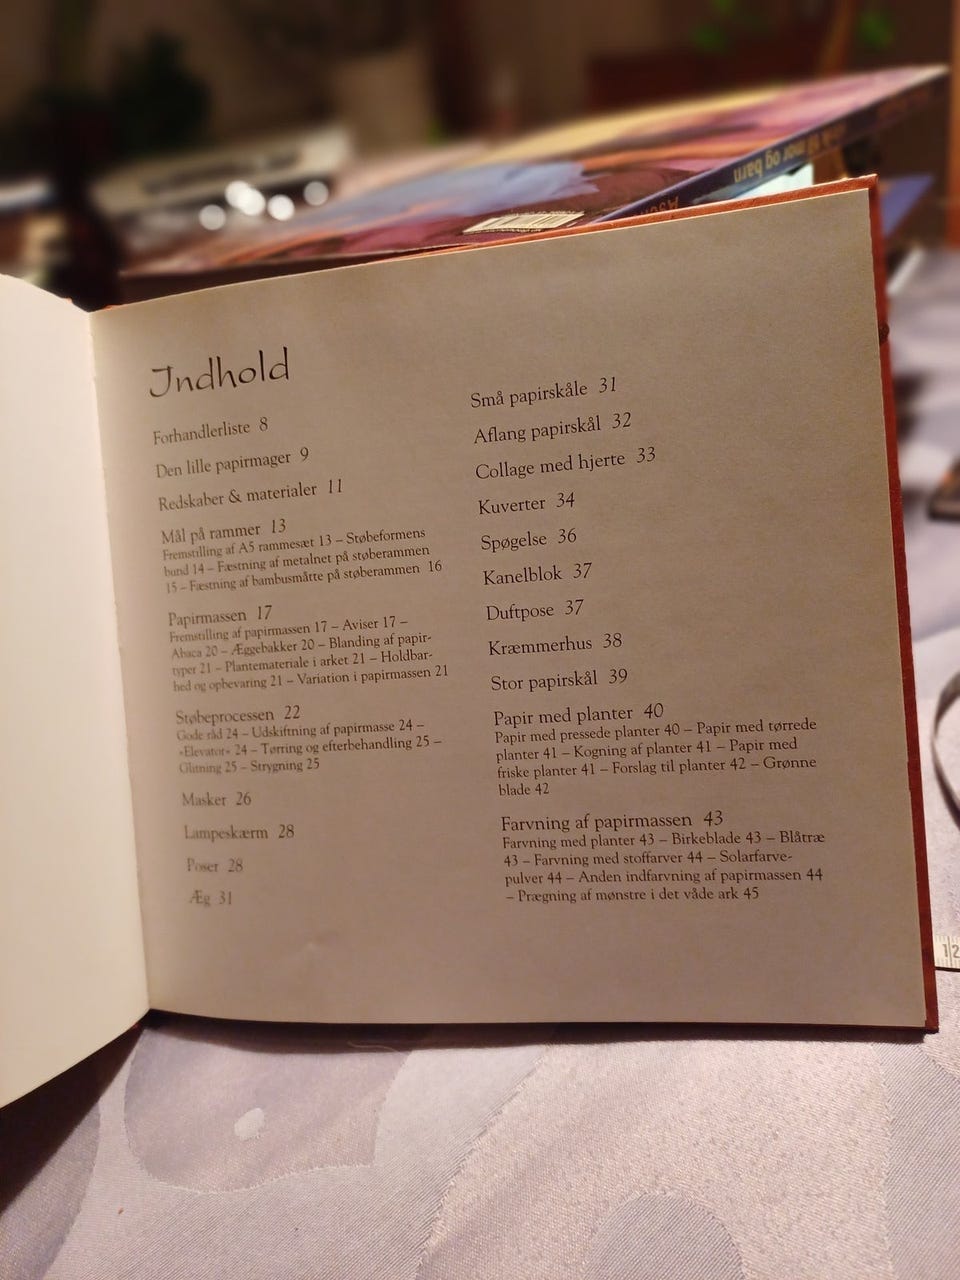 Indhold
Forhandlerliste 8
Den lille papirmager 9
Redskaber & materialer 11
Mål på rammer 13
Fremstilling af A5 rammesæt 13 – Støbeformens
bund 14 – Fæstning af metalnet på støberammen
15 – Fæstning af bambusmåtte på støberammen 16
Papirmassen 17
Fremstilling af papirmassen 17 – Aviser 17 –
Abaca 20 – Æggebakker 20 – Blanding af papir-
typer 21 – Plantemateriale i arket 21 – Holdbar-
hed og opbevaring 21 – Variation i papirmassen 21
Støbeprocessen 22
Gode råd 24 – Udskiftning af papirmasse 24 –
»Elevator« 24 – Tørring og efterbehandling 25 –
Glitning 25 – Strygning 25
Masker 26
Lampeskærm 28
Poser 28
Æg 31
Små papirskåle 31
Aflang papirskål 32
Collage med hjerte 33
Kuverter 34
Spøgelse 36
Kanelblok 37
Duftpose 37
Kræmmerhus 38
Stor papirskål 39
Papir med planter 40
Papir med pressede planter 40 – Papir med tørrede
planter 41 – Kogning af planter 41 – Papir med
friske planter 41 – Forslag til planter 42 – Grønne
blade 42
Farvning af papirmassen 43
Farvning med planter 43 – Birkeblade 43 – Blåtræ
43 – Farvning med stoffarver 44 – Solarfarve-
pulver 44 – Anden indfarvning af papirmassen 44
– Prægning af mønstre i det våde ark 45
til mor og barn
12